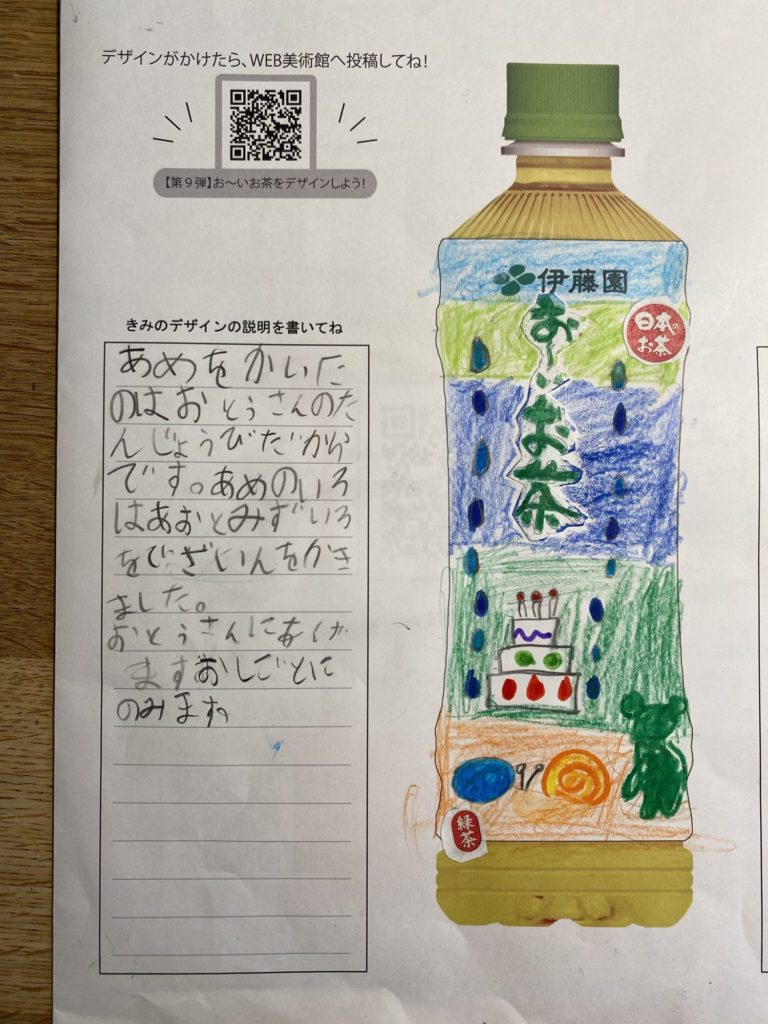 デザインがかけたら、WEB美術館へ投稿してね!
【第9弾】お〜いお茶をデザインしよう!
きみのデザインの説明を書いてね
あめをかいた
のはおとうさんのた
んじょうびだから
です。あめのいろ
はあおとみずいろ
をでざいんをかき
ました。
おとうさんにあげ
ますおしごとに
のみます。
伊藤園
お〜いお茶
日本の
お茶
緑茶